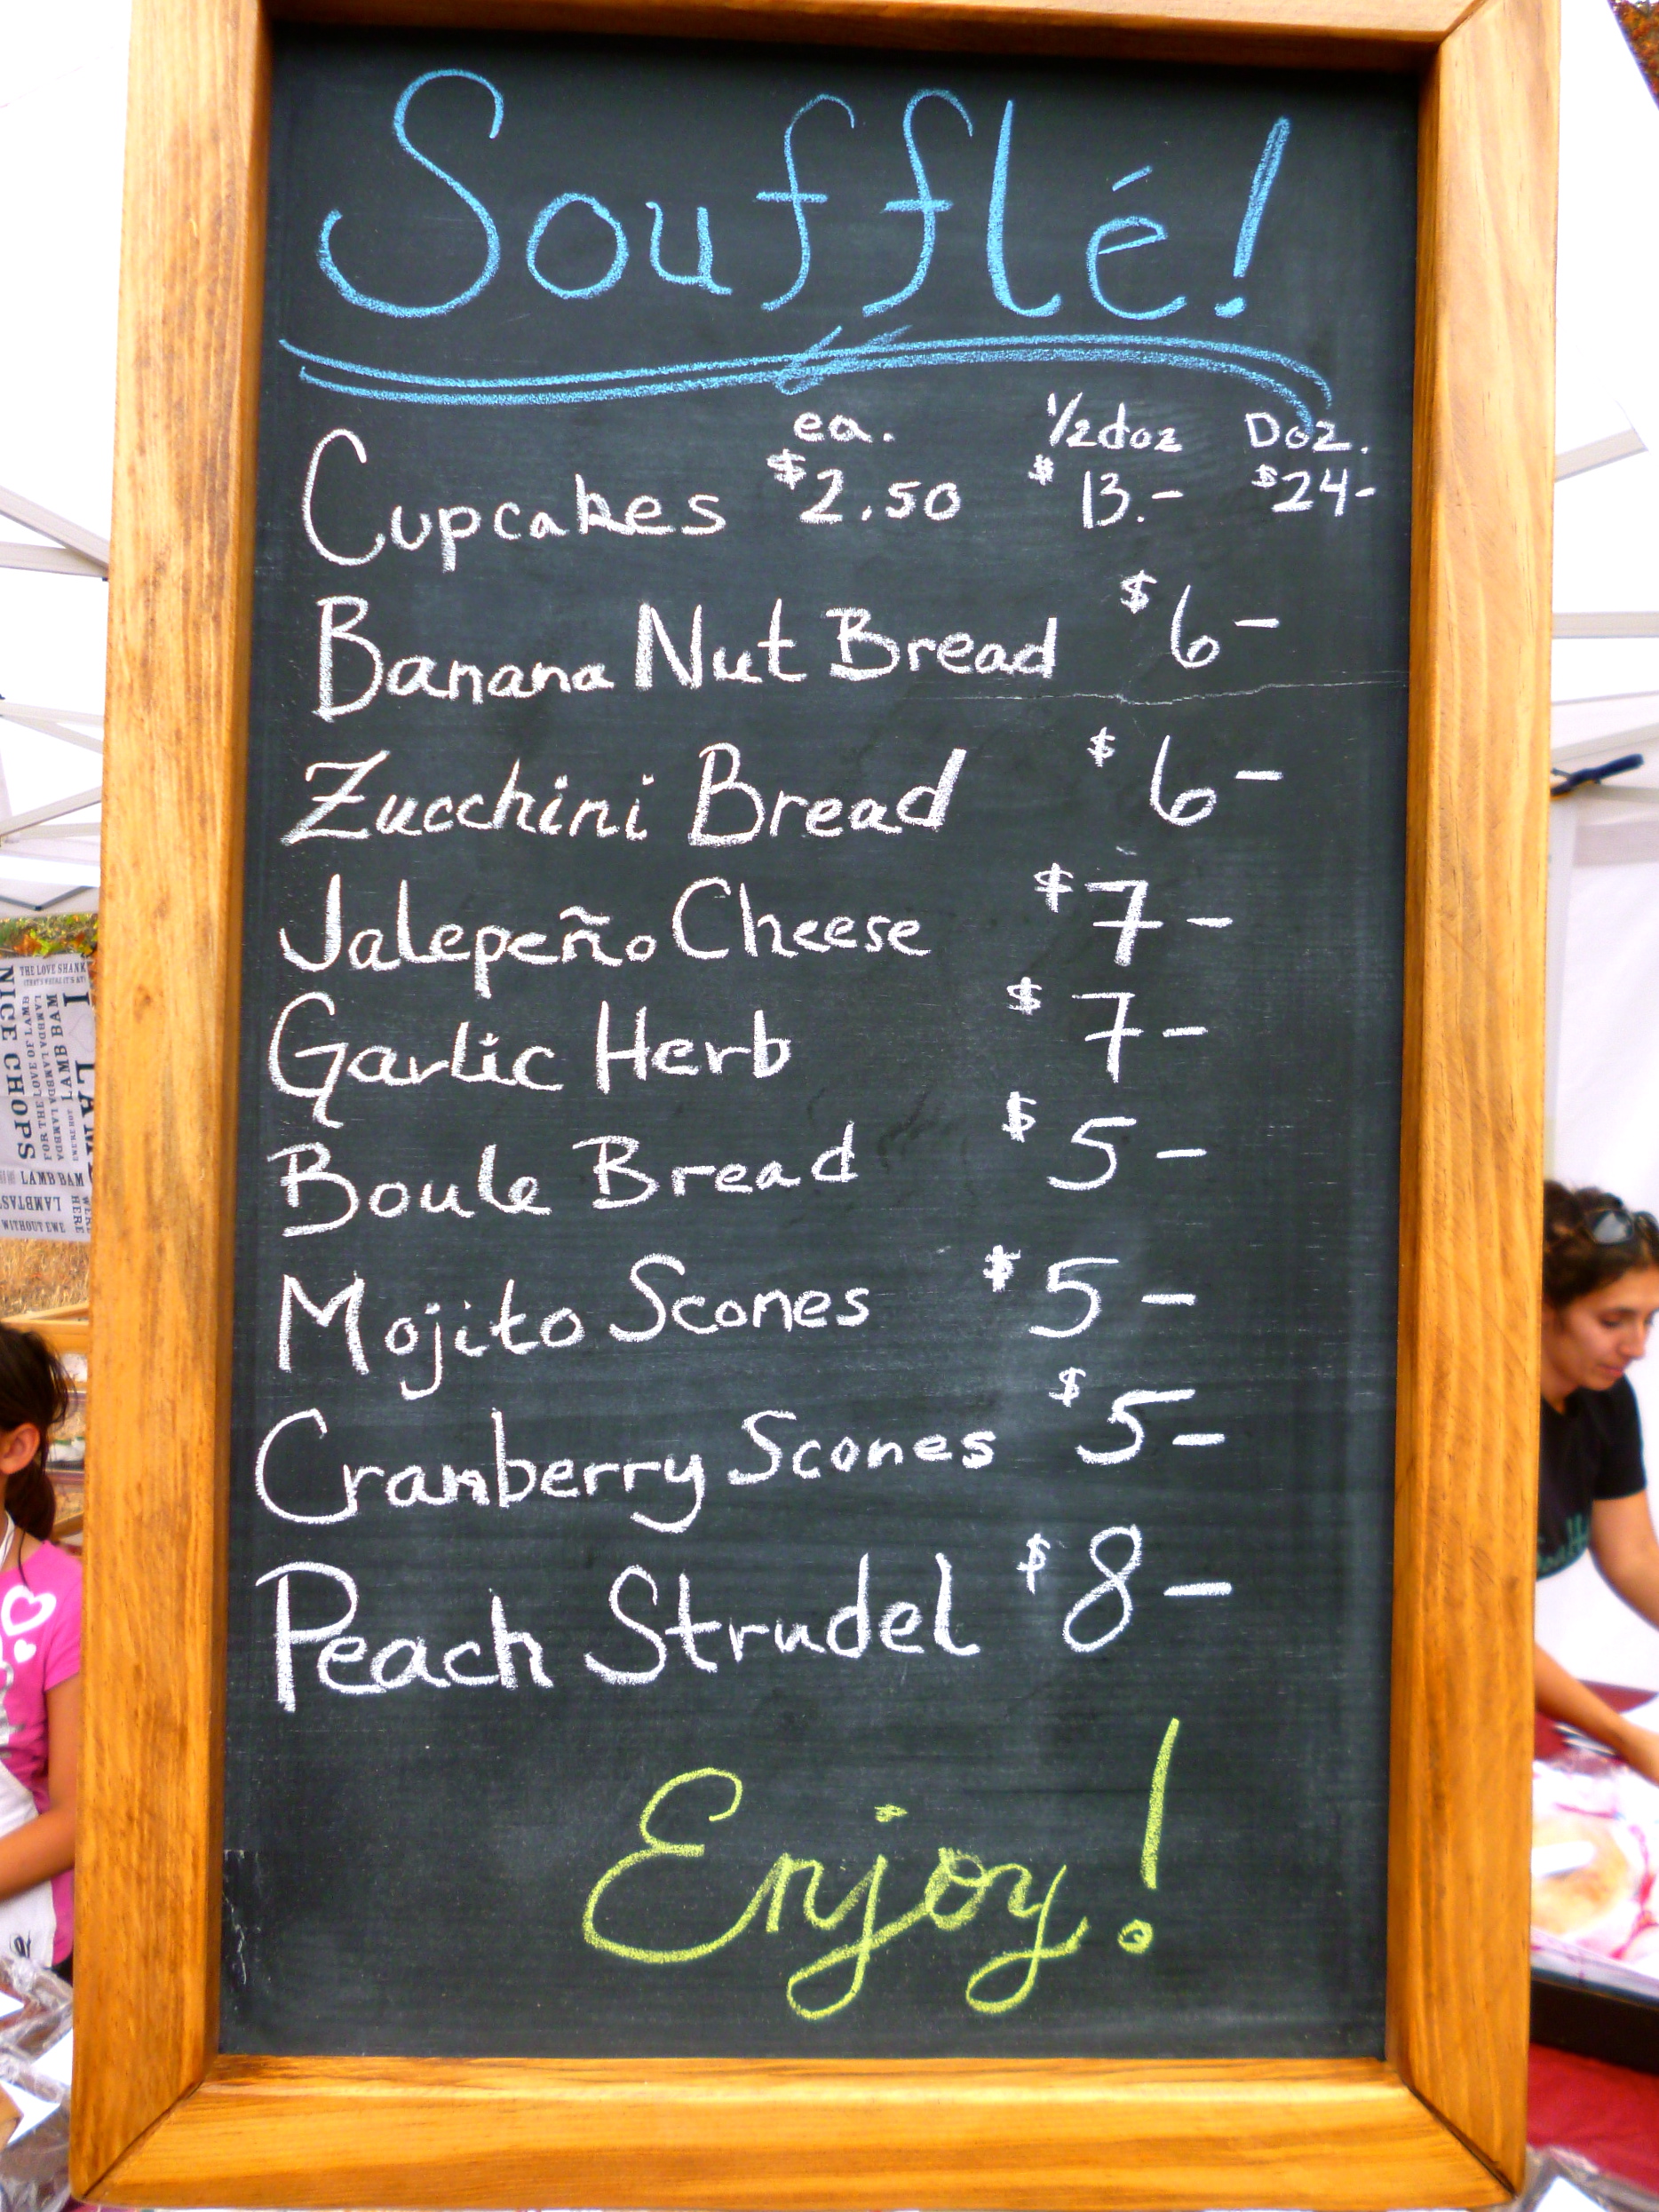 Soufflé!
ea. 1/2doz Doz.
Cupcakes $2.50 $13.- $24-
Banana Nut Bread $6-
Zucchini Bread $6-
Jalepeño Cheese $7-
Garlic Herb $7-
Boule Bread $5-
Mojito Scones $5-
Cranberry Scones $5-
Peach Strudel $8-
Enjoy!
THE LOVE SHANK
NICE CHOPS
FOR THE LOVE OF LAMB
LAMB BAM
LAMB BAM
WITHOUT EWE